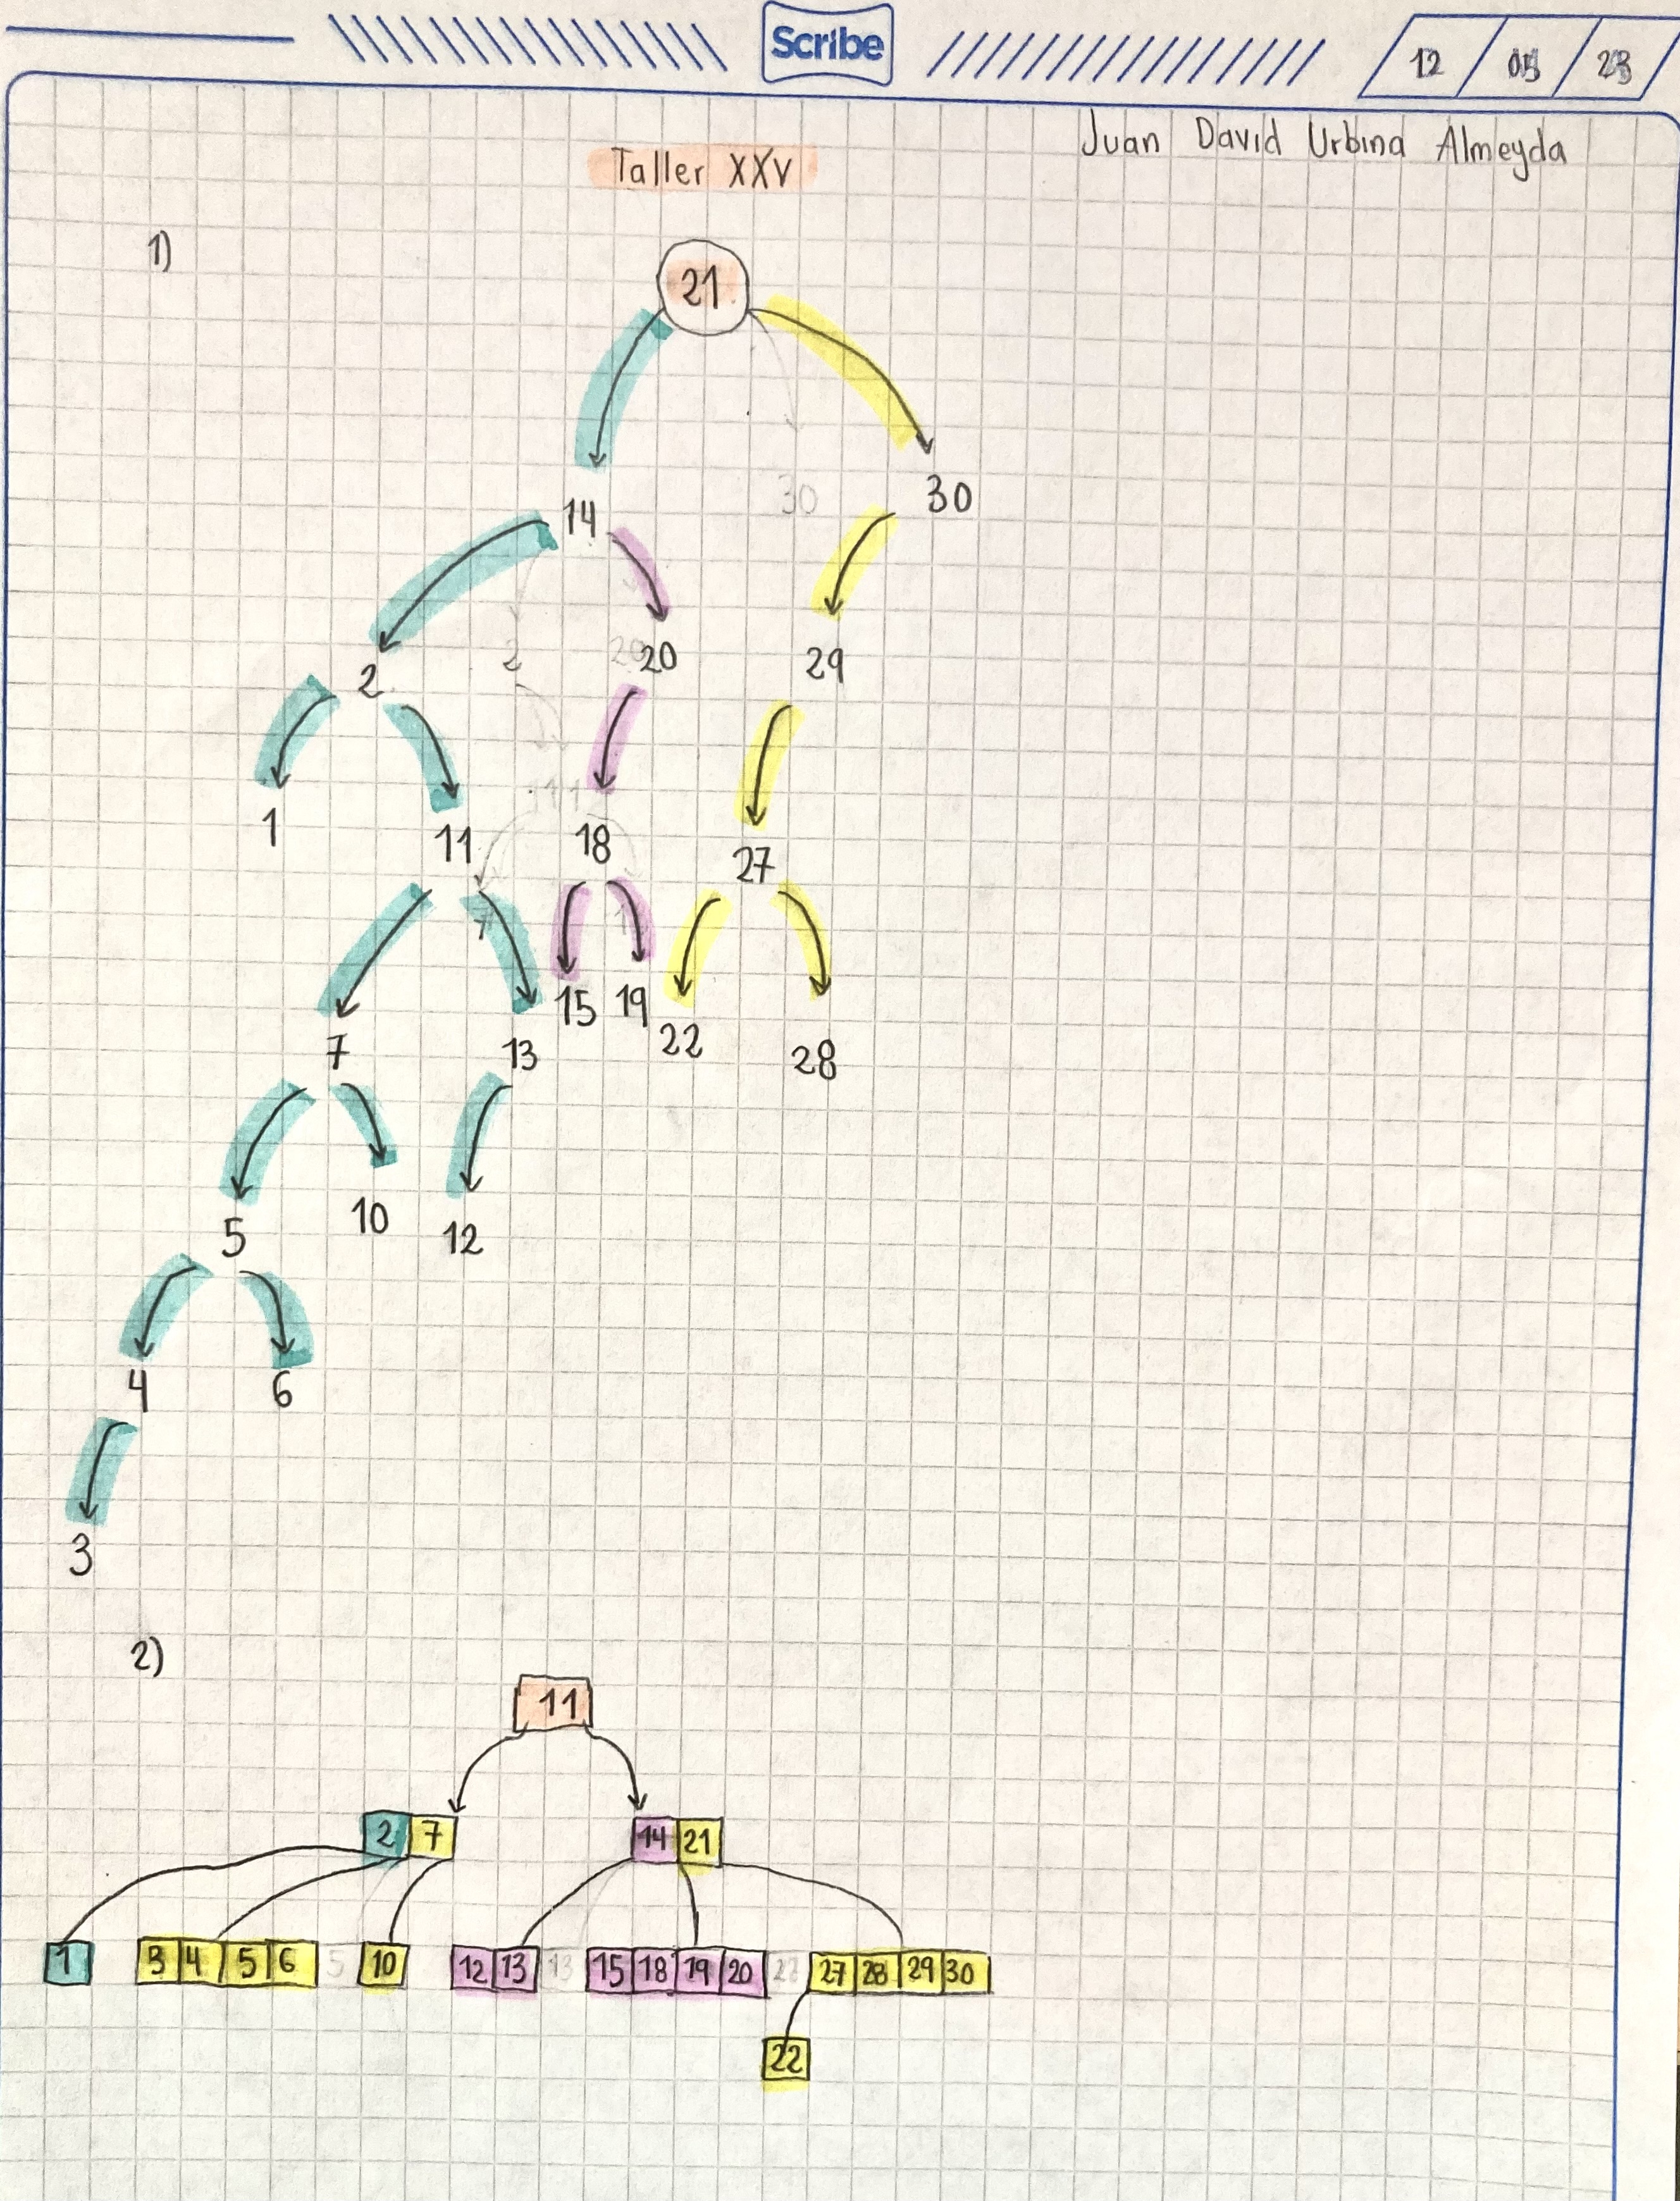 Scribe
12 05 23
Juan David Urbina Almeyda
Taller XXV
1)
21
14 30 30
2 2 20 29
1 11 18 27
7 13 15 19 22 28
5 10 12
4 6
3
2)
11
2 7 14 21
1 3 4 5 6 5 10 12 13 13 15 18 19 20 27 28 29 30
22